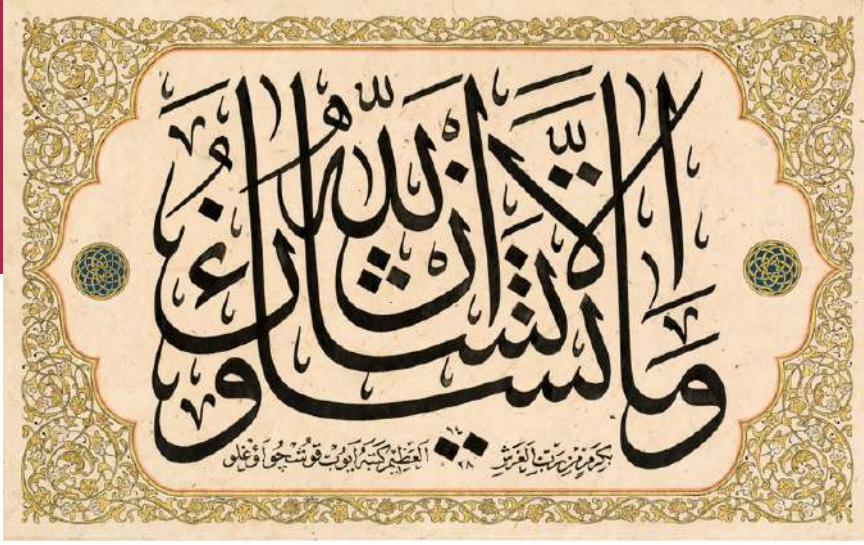 وما تشاؤن الا ان يشاء الله
بكرم من رب العرش العظيم كتبه ايوب قوشچو اوغلو
١٤٢٨